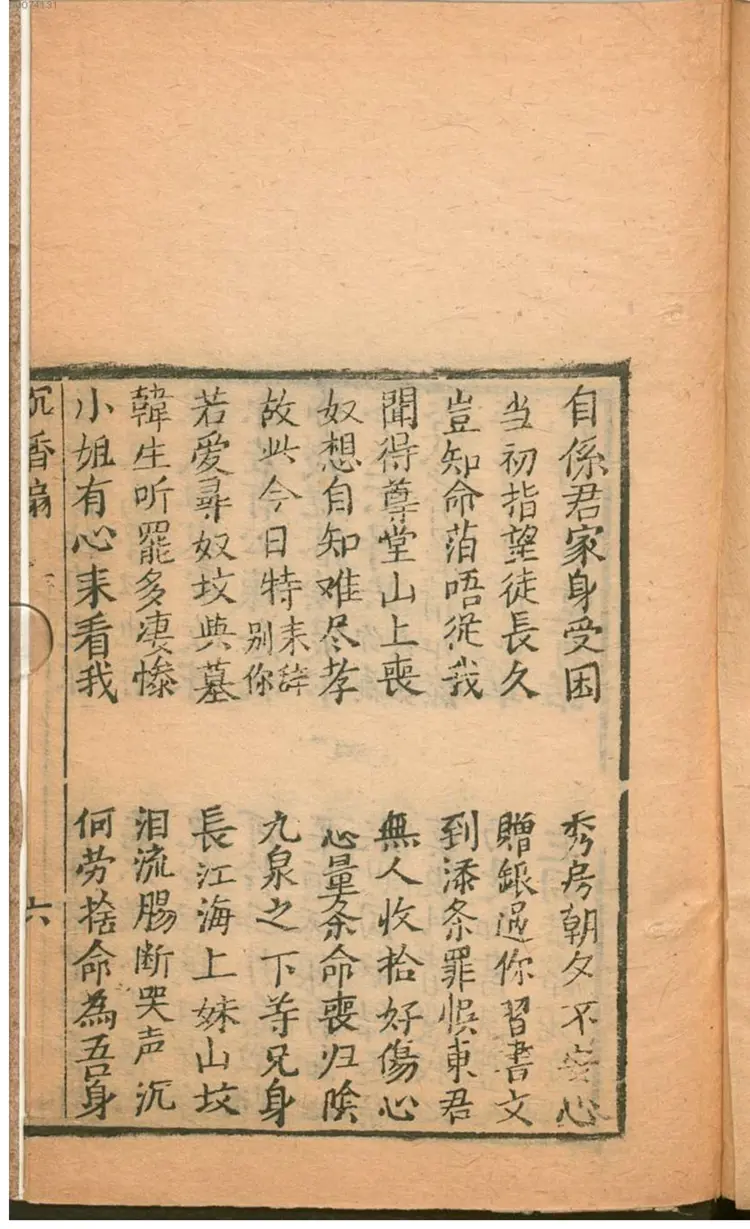 自係君家身受困 秀房朝夕不安心
当初指望徒長久 贈銀過你習書文
豈知命泊唔從我 到添条罪悞東君
聞得尊堂山上喪 無人收拾好傷心
奴想自知难尽孝 心量奈命喪归陰
故此今日特来辞别你 九泉之下等兄身
若爱尋奴坟與墓 長江海上妹山坟
韓生听罷多凄惨 泪流腸断哭声沉
小姐有心来看我 何劳捨命為吾身
沉香扇 六